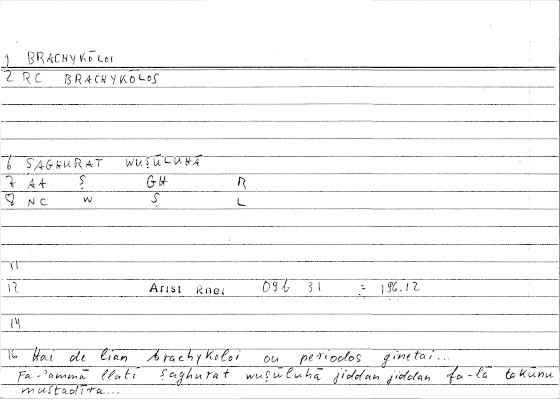 1 BRACHYKŌLOI
2 RC BRACHYKŌLOS
6 ṢAGHURAT WUṢŪLUHĀ
7 AA Ṣ GH R
8 NC W Ṣ L
11
12 Arist Rhet 09b 31 = 196.12
14
16 Hai de lian brachykoloi ou periodos ginetai...
Fa-ʾammā llatī ṣaghurat wuṣūluhā jiddan jiddan fa-lā takūnu
mustadīra...